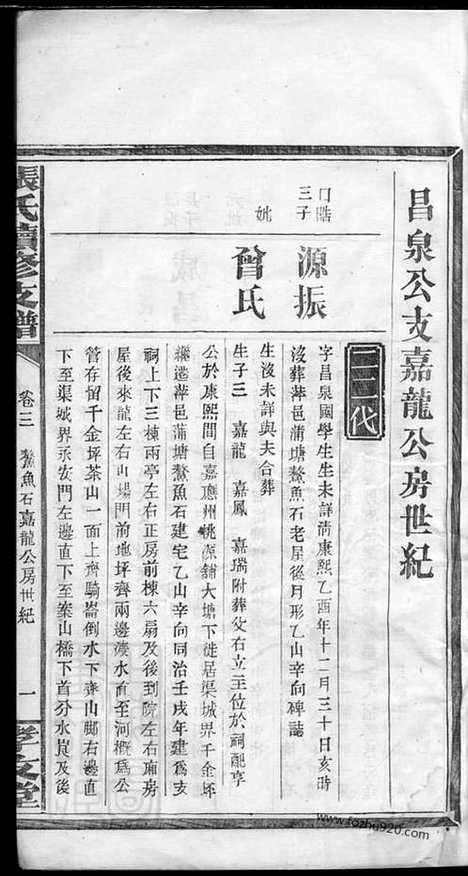 昌泉公支嘉龍公房世紀
二十一代
口皓三子
源振
字昌泉國學生生未詳清康熙乙酉年十二月三十日亥時
沒葬萍邑蒲塘鰲魚石老屋後月形乙山辛向碑誌
妣
曾氏
生沒未詳與夫合葬
生子三 嘉龍 嘉鳳 嘉瑞附葬父右立主位於祠配享
公於康熙間自嘉應州桃源舖大塘下徙居渠城界千金坪
繼遷萍邑蒲塘鰲魚石建宅乙山辛向同治壬戌年建為支
祠上下三棟兩亭左右正房前棟六扇及後到院左右廂房
屋後來龍左右山場門前地坪齊兩邊濺水直至河概為公
管存留千金坪茶山一面上齊騎崙倒水下齊山腳右邊直
下至渠城界永安門左邊直下至案山橋下首分水崑及後
張氏續修支譜
卷三 鰲魚石嘉龍公房世紀
一
孝友堂
www.fozhu920.com